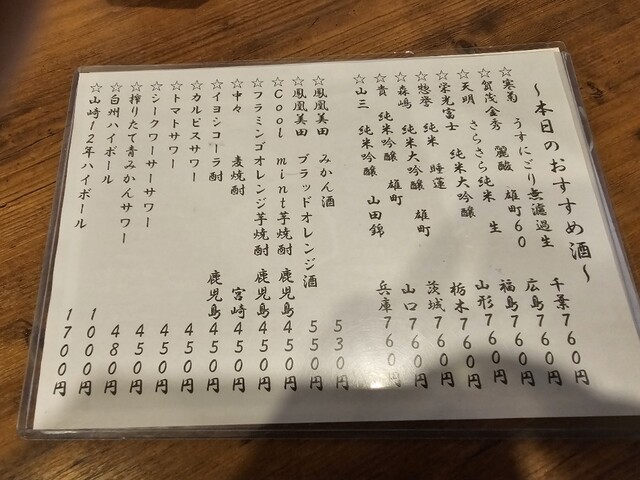 ～本日のおすすめ酒～
☆寒菊 うすにごり無濾過生 千葉760円
☆賀茂金秀 麗酸 雄町60 広島760円
☆天明 さらさら純米 生 福島760円
☆栄光冨士 純米大吟醸 山形760円
☆惣誉 純米 睡蓮 栃木760円
☆森嶋 純米大吟醸 雄町 茨城760円
☆貴 純米吟醸 雄町 山口760円
☆山三 純米吟醸 山田錦 兵庫760円
☆鳳凰美田 みかん酒 530円
☆鳳凰美田 ブラッドオレンジ酒 550円
☆Cool mint芋焼酎 鹿児島450円
☆フラミンゴオレンジ芋焼酎 鹿児島450円
☆中々 麦焼酎 宮崎450円
☆イヨシコーラ酎 鹿児島450円
☆カルピスサワー 450円
☆トマトサワー 450円
☆シークワーサーサワー 450円
☆搾りたて青みかんサワー 480円
☆白州ハイボール 1000円
☆山崎12年ハイボール 1700円